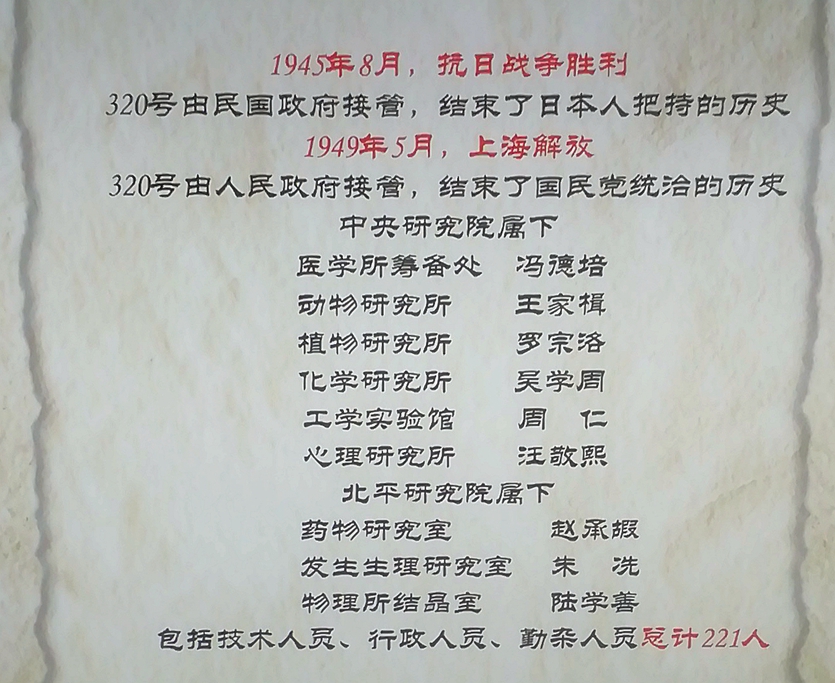 1945年8月，抗日战争胜利
320号由民国政府接管，结束了日本人把持的历史
1949年5月，上海解放
320号由人民政府接管，结束了国民党统治的历史
中央研究院属下
医学所筹备处 冯德培
动物研究所 王家楫
植物研究所 罗宗洛
化学研究所 吴学周
工学实验馆 周 仁
心理研究所 汪敬熙
北平研究院属下
药物研究室 赵承嘏
发生生理研究室 朱 洗
物理所结晶室 陆学善
包括技术人员、行政人员、勤杂人员总计221人